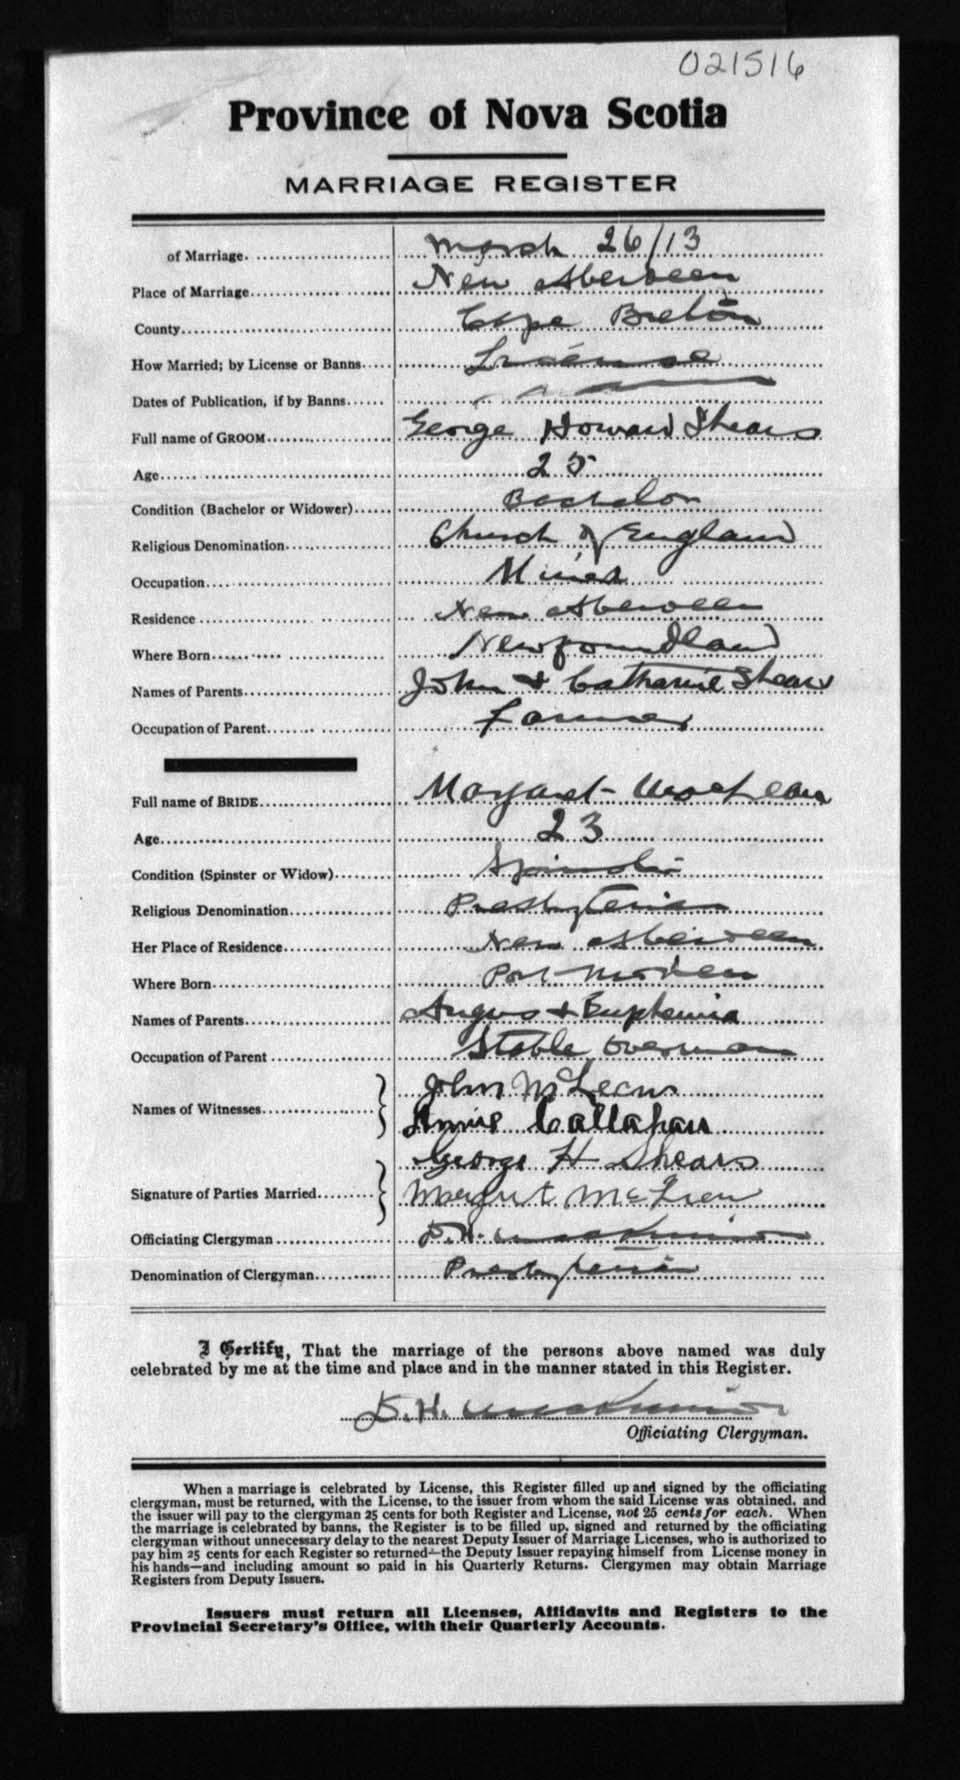 021516
Province of Nova Scotia
MARRIAGE REGISTER
of Marriage March 26/13
Place of Marriage New Aberdeen
County Cape Breton
How Married; by License or Banns License
Dates of Publication, if by Banns
Full name of GROOM George Howard Shears
Age 25
Condition (Bachelor or Widower) Bachelor
Religious Denomination Church of England
Occupation Miner
Residence New Aberdeen
Where Born Newfoundland
Names of Parents John & Catharine Shears
Occupation of Parent Farmer
Full name of BRIDE Margaret MacLean
Age 23
Condition (Spinster or Widow) Spinster
Religious Denomination Presbyterian
Her Place of Residence New Aberdeen
Where Born Port Morien
Names of Parents Angus & Euphemia
Occupation of Parent Stable Overman
John McLean
Names of Witnesses
Annie Callahan
George H Shears
Signature of Parties Married Margret McLean
Officiating Clergyman D. H. MacKinnon
Denomination of Clergyman Presbyterian
I Certify, That the marriage of the persons above named was duly
celebrated by me at the time and place and in the manner stated in this Register.
D. H. MacKinnon
Officiating Clergyman.
When a marriage is celebrated by License, this Register filled up and signed by the officiating
clergyman, must be returned, with the License, to the issuer from whom the said License was obtained, and
the issuer will pay to the clergyman 25 cents for both Register and License, not 25 cents for each. When
the marriage is celebrated by banns, the Register is to be filled up, signed and returned by the officiating
clergyman without unnecessary delay to the nearest Deputy Issuer of Marriage Licenses, who is authorized to
pay him 25 cents for each Register so returned—the Deputy Issuer repaying himself from License money in
his hands—and including amount so paid in his Quarterly Returns. Clergymen may obtain Marriage
Registers from Deputy Issuers.
Issuers must return all Licenses, Affidavits and Registers to the
Provincial Secretary's Office, with their Quarterly Accounts.